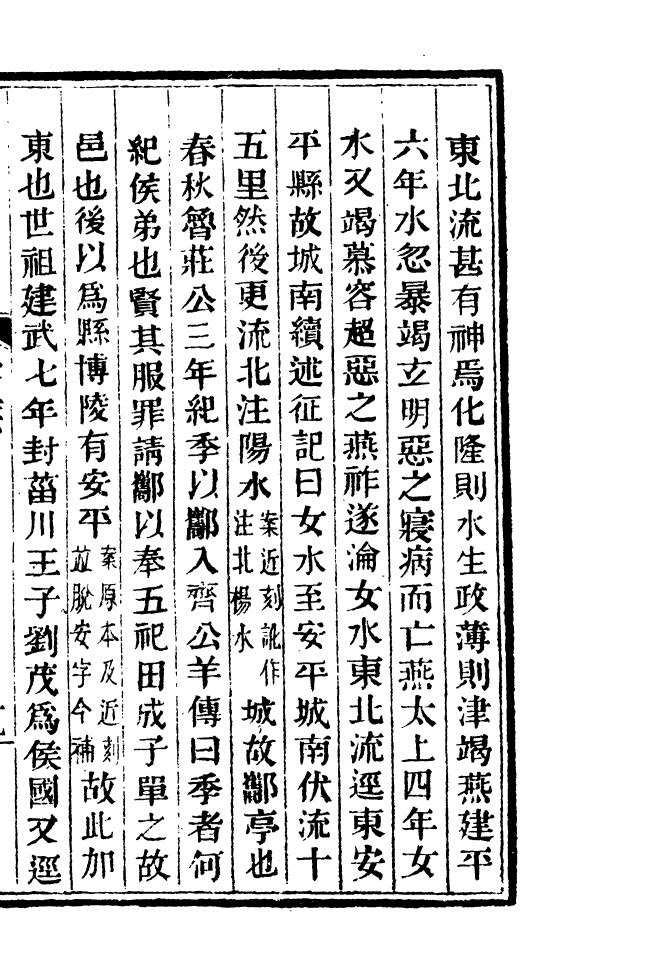 東北流甚有神焉化隆則水生政薄則津竭燕建平
六年水忽暴竭玄明惡之寢病而亡燕太上四年女
水又竭慕容超惡之燕祚遂淪女水東北流逕東安
平縣故城南續述征記曰女水至安平城南伏流十
五里然後更流北注陽水案近刻訛作注北楊水城故酅亭也
春秋魯莊公三年紀季以酅入齊公羊傳曰季者何
紀侯弟也賢其服罪請酅以奉五祀田成子單之故
邑也後以爲縣博陵有安平案原本及近刻並脫安字今補故此加
東也世祖建武七年封菑川王子劉茂爲侯國又逕